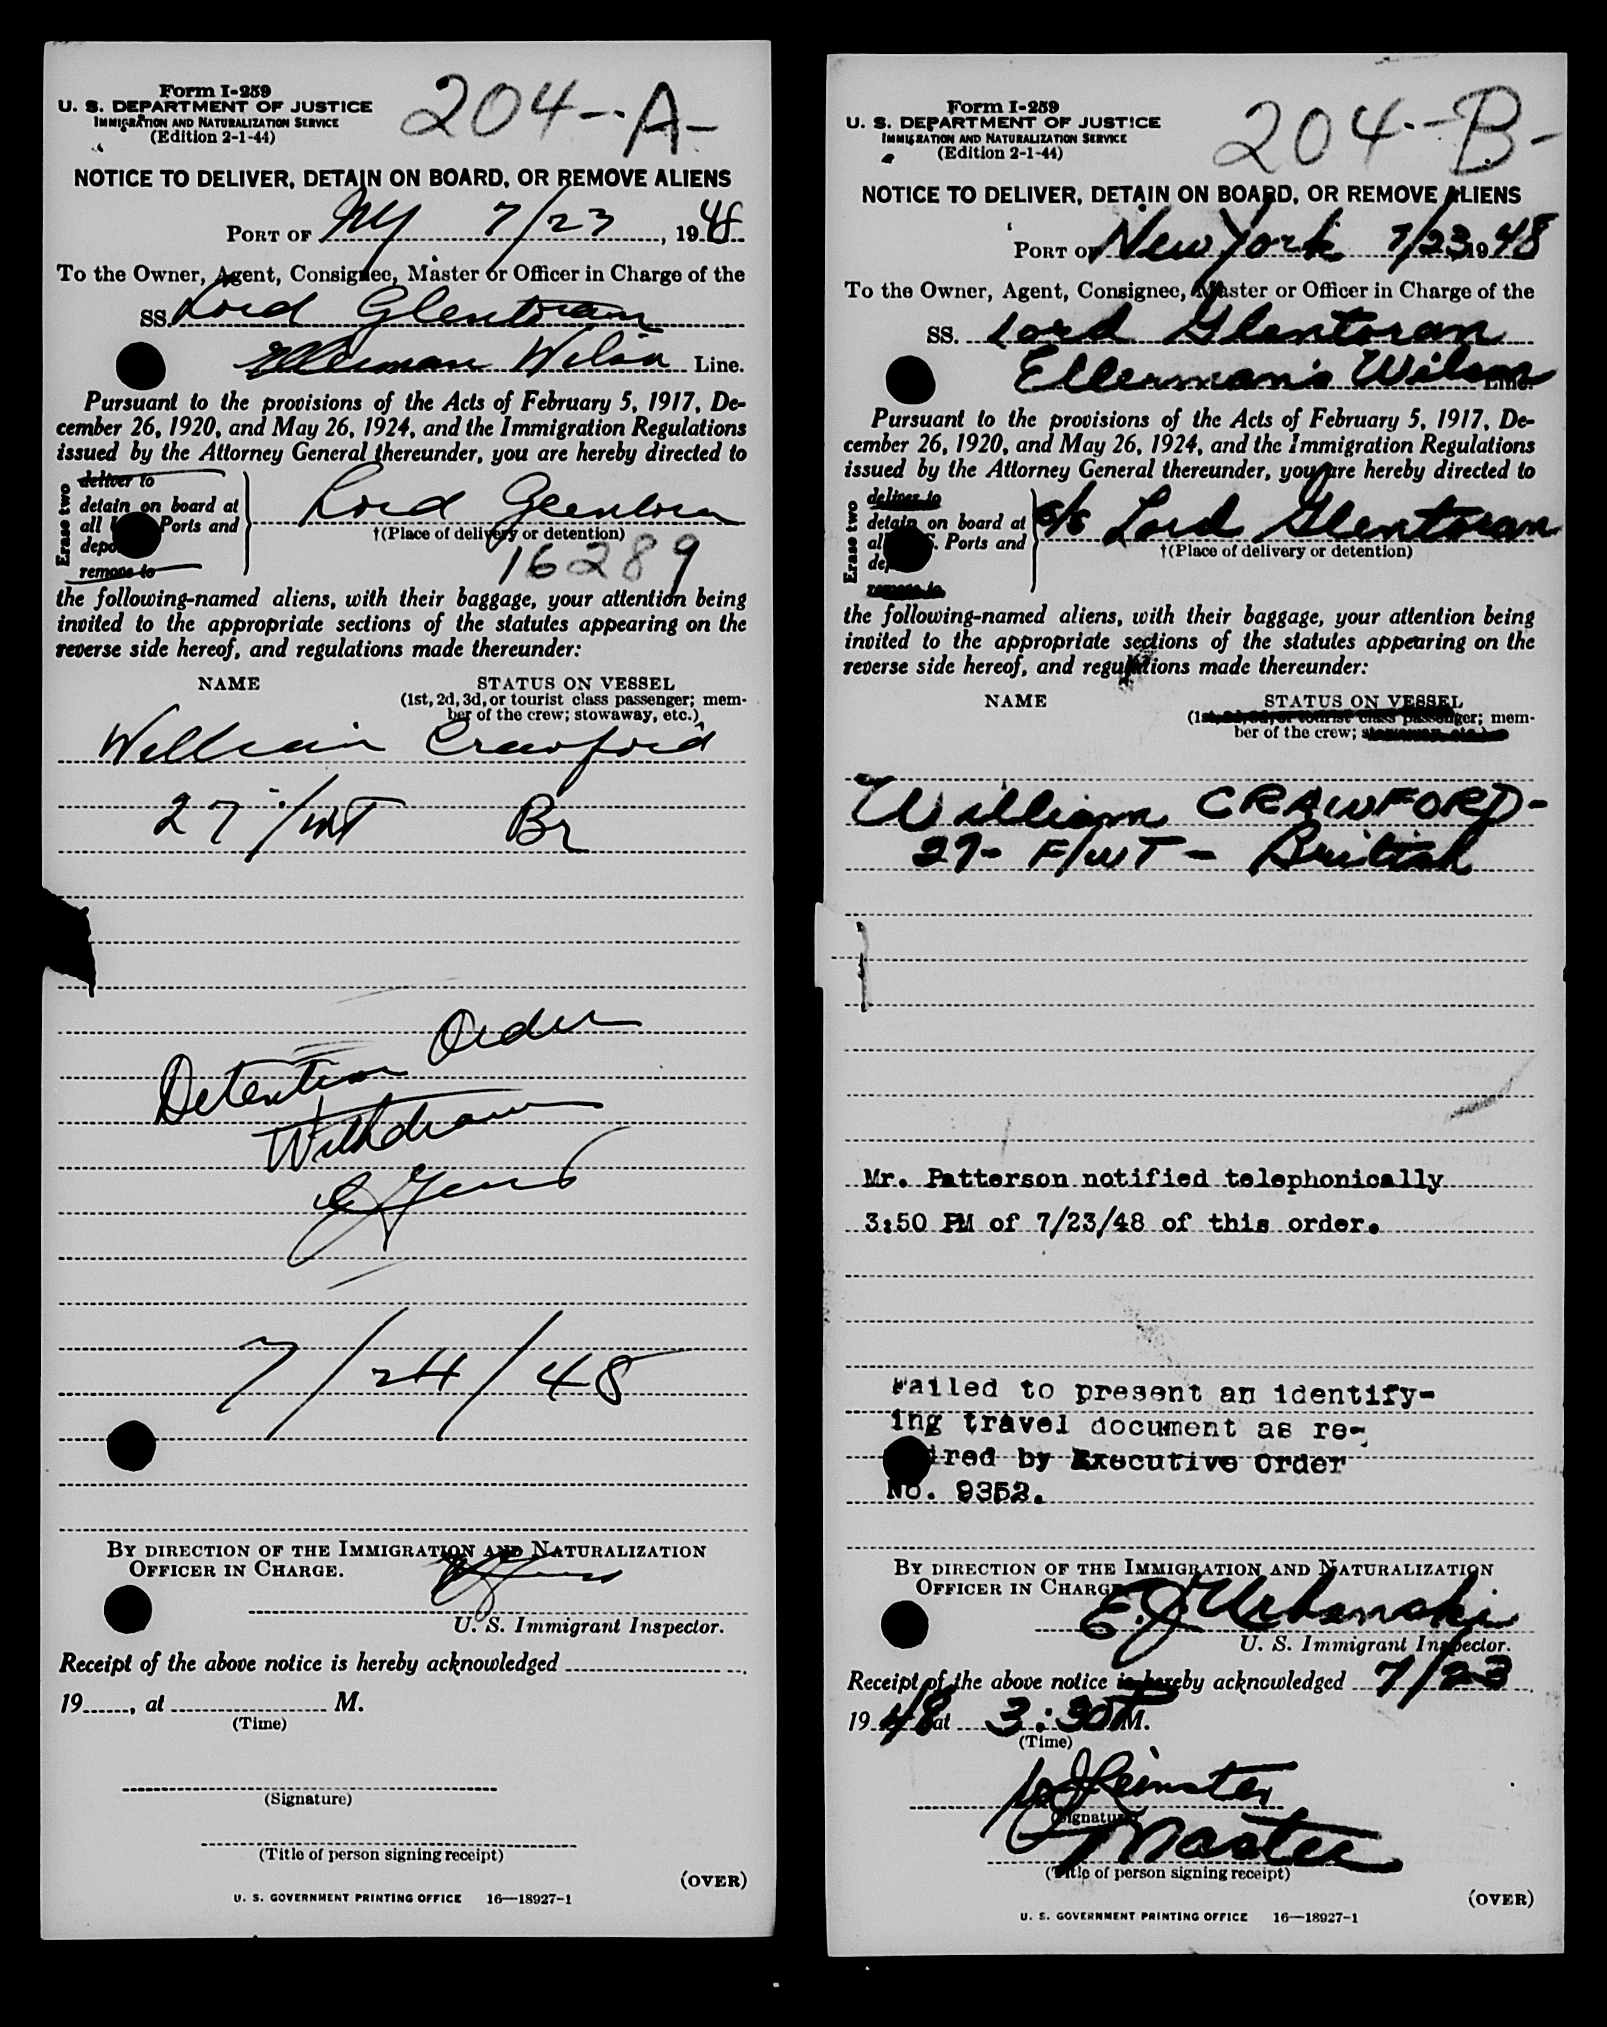 Form I-259
U. S. DEPARTMENT OF JUSTICE
IMMIGRATION AND NATURALIZATION SERVICE
(Edition 2-1-44)
204--A-
NOTICE TO DELIVER, DETAIN ON BOARD, OR REMOVE ALIENS
PORT OF NY 7/23, 1948
To the Owner, Agent, Consignee, Master or Officer in Charge of the
SS. Lord Glentoran
Ellerman Wilson Line.
Pursuant to the provisions of the Acts of February 5, 1917, De-
cember 26, 1920, and May 26, 1924, and the Immigration Regulations
issued by the Attorney General thereunder, you are hereby directed to
Erase two
deliver to
detain on board at
all Ports and
depo
remove to
Lord Glentoran
†(Place of delivery or detention)
16289
the following-named aliens, with their baggage, your attention being
invited to the appropriate sections of the statutes appearing on the
reverse side hereof, and regulations made thereunder:
NAME STATUS ON VESSEL
(1st, 2d, 3d, or tourist class passenger; mem-
ber of the crew; stowaway, etc.)
William Crawford
27 /WT Br
Detention Order
Withdrawn
7/24/48
BY DIRECTION OF THE IMMIGRATION AND NATURALIZATION
OFFICER IN CHARGE.
U. S. Immigrant Inspector.
Receipt of the above notice is hereby acknowledged
19......, at M.
(Time)
(Signature)
(Title of person signing receipt)
(OVER)
U. S. GOVERNMENT PRINTING OFFICE 16—18927-1
Form I-259
U. S. DEPARTMENT OF JUSTICE
IMMIGRATION AND NATURALIZATION SERVICE
(Edition 2-1-44)
204--B-
NOTICE TO DELIVER, DETAIN ON BOARD, OR REMOVE ALIENS
PORT OF New York 7/23 1948
To the Owner, Agent, Consignee, Master or Officer in Charge of the
SS. Lord Glentoran
Ellerman's Wilson Line.
Pursuant to the provisions of the Acts of February 5, 1917, De-
cember 26, 1920, and May 26, 1924, and the Immigration Regulations
issued by the Attorney General thereunder, you are hereby directed to
Erase two
deliver to
detain on board at
al S. Ports and
de
remove to
s/s Lord Glentoran
†(Place of delivery or detention)
the following-named aliens, with their baggage, your attention being
invited to the appropriate sections of the statutes appearing on the
reverse side hereof, and regulations made thereunder:
NAME STATUS ON VESSEL
(1st, 2d, 3d, or tourist class passenger; mem-
ber of the crew; stowaway, etc.)
William CRAWFORD-
27- F/WT - British
Mr. Patterson notified telephonically
3:50 PM of 7/23/48 of this order.
Failed to present an identify-
ing travel document as re-
ired by Executive Order
No. 9352.
BY DIRECTION OF THE IMMIGRATION AND NATURALIZATION
OFFICER IN CHARGE
E. J. Urbanski
U. S. Immigrant Inspector.
Receipt of the above notice is hereby acknowledged 7/23
1948 at 3:30 P M.
(Time)
(Signature)
Master
(Title of person signing receipt)
(OVER)
U. S. GOVERNMENT PRINTING OFFICE 16—18927-1